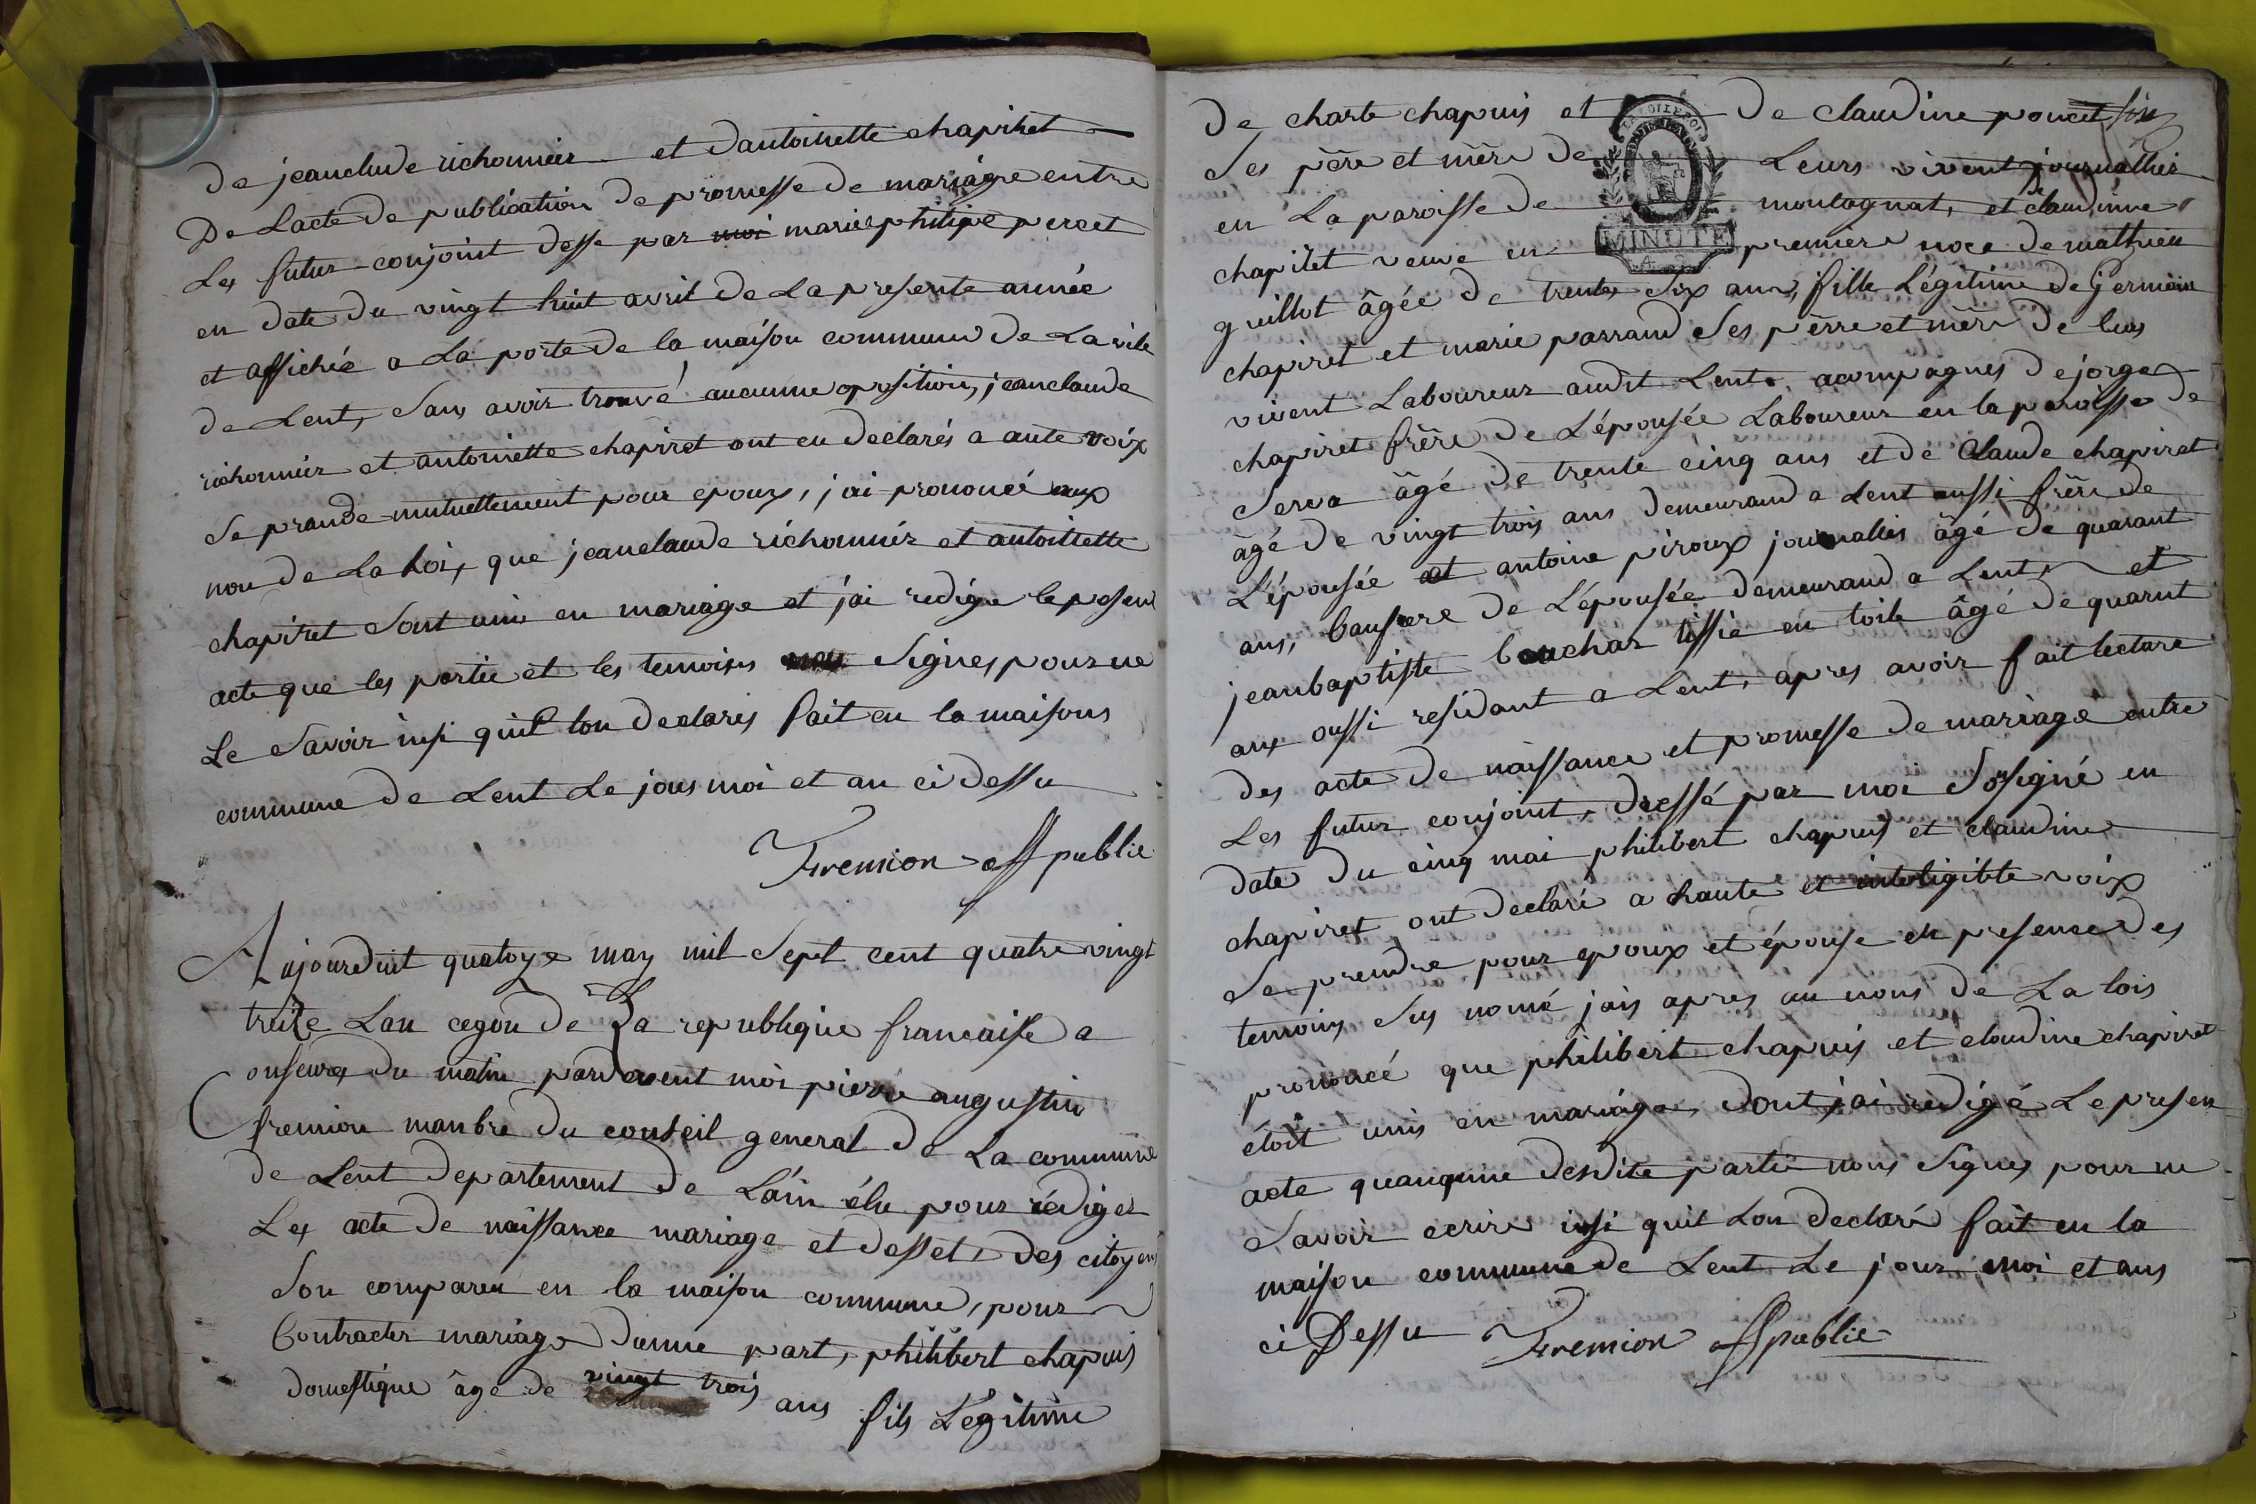 de jeanclude richonnier et dantoinette chapiret
De Lacte de publication de promesse de mariage entre
Les futur conjoint desse par moi marie philipe percet
en date du vingt huit avril de La presente année
et affichée a La porte de la maison commune de La vile
de Lent, sans avoir trouvé aucunne oposition, jeanclaude
richonnier et antoinette chapiret ont eu declarés a aute voix
se prande mutuellement pour epoux, j'ai prononcé aux
non de La Loi, que jeanclaude richonnier et antoinette
chapiret sont uni en mariage et j'ai redigée le presend
acte que les partie et les temoins Signes pour ne
Le Savoir insi quil lon declarés fait en la maisons
commune de Lent Le jour moi et an ci dessu
Fremion off public
Aujourduit quatoze may mil Sept cent quatre vingt
treize Lan cegon de La republique francaise a
onseures du matin pardevent moi pierre augustin
fremion manbre du conseil general de La commune
de Lent departement de Lain élu pour rédiger
Les acte de naissance mariage et desset, des citoyens
Son comparu en la maison commune, pour
Contracter mariage dunne part, philibert chapuis
domestique âge de vingt trois ans fils Légitime
de charle chapuis et de claudine poncet
Ses père et mère de Leurs vivent journallier
en La paroisse de montagnat, et de claudinne
chapiret veuve en premiere noce de mathieu
guillot âgée de trente six ans, fille Légitime de Germain
chapiret et marie parraud Ses pèrre et mère de leurs
vivent Laboureur audit Lent. acompagnés de jorge
chapiret frère de L'épousée Laboureur en la paroisse de
Serva âgé de trente cinq ans et de Claude chapiret
âgé de vingt trois ans demeurand a Lent aussi frère de
L'épousée et antoine piroux journallier âgé de quarant
ans, baufrere de L'épousée demeurand a Lent et
jeanbaptiste bouchar tissie en toile âgé de quarant
ans aussi residant a Lent, apres avoir fait lecture
des acte de naissance et promesse de mariage entre
Les futur conjoint, dressé par moi Sosigné en
date du cinq mai philibert chapuis et claudine
chapiret ont declaré a haute et inteligible voix
Se prendre pour epoux et épouse en presence des
temoins Sus nomé jais apres au nons de La lois
prononcé que philibert chapuis et claudine chapiret
étoit unis en mariage, dont j'ai redigé Le presen
acte quauqune desdite partie nons Signes pour ne
Savoir ecrire insi quil Lon declaré fait en la
maison commune de Lent Le jour moi et ans
ci Dessu Fremion off public
MINUTE